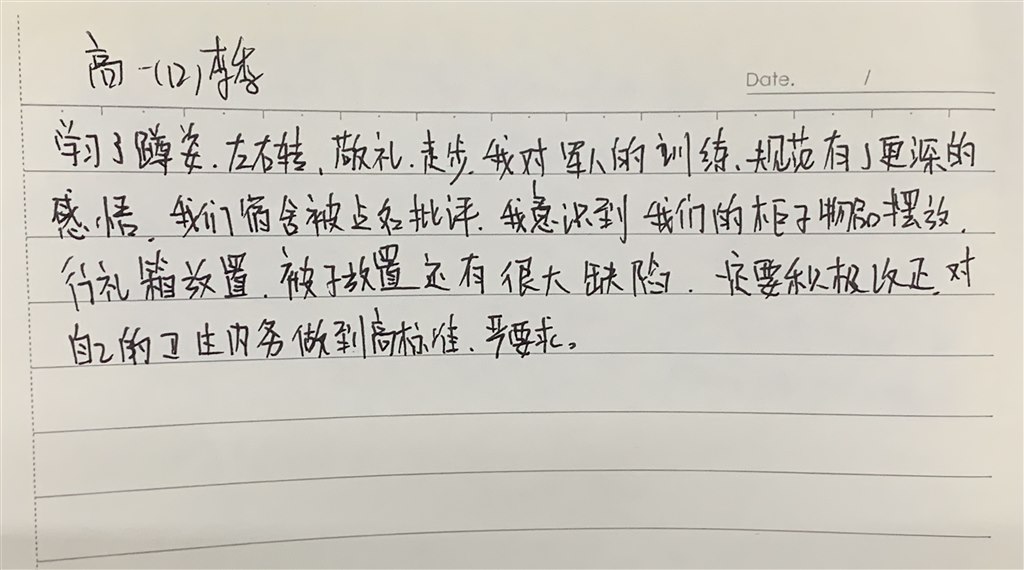 高一(12)李季
Date. /
学习了蹲姿、左右转、敬礼、走步,我对军人的训练、规范有了更深的
感悟。我们宿舍被点名批评,我意识到我们的柜子物品摆放、
行礼箱放置、被子放置还有很大缺险。一定要积极改正,对
自己的卫生内务做到高标准、严要求。